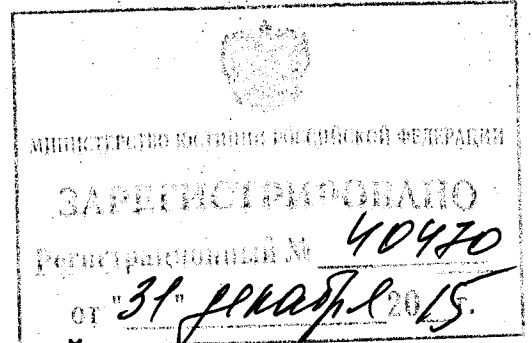 МИНИСТЕРСТВО ЮСТИЦИИ РОССИЙСКОЙ ФЕДЕРАЦИИ
ЗАРЕГИСТРИРОВАНО
Регистрационный № 40470
от "31" декабря 2015г.